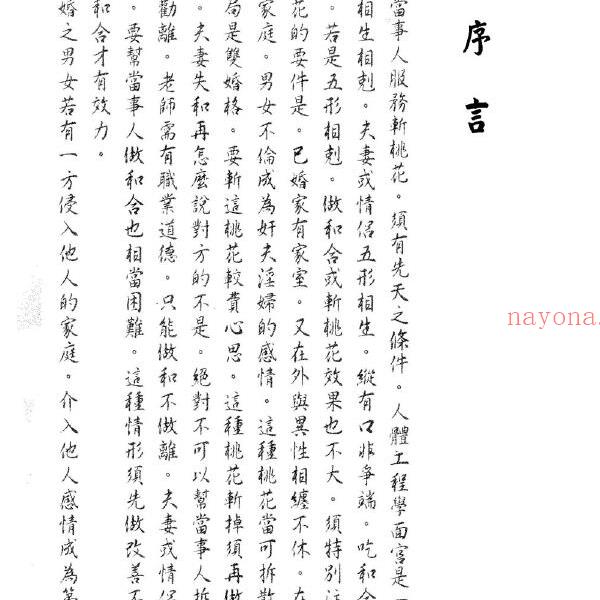 序言
當事人服務斬桃花。須有先天之條件。人體工程學面宮是一
相生相剋。夫妻或情侶五形相生。縱有口非爭端。吃和合
。若是五形相剋。做和合或斬桃花效果也不大。須特別注
花的要件是。已婚家有家室。又在外與異性相纏不休。在
家庭。男女不倫成為奸夫淫婦的感情。這種桃花當可拆散
局是雙婚格。要斬這桃花較費心思。這種桃花斬掉須再做
。夫妻失和再怎麼說對方的不是。絕對不可以幫當事人拆
勸離。老師需有職業道德。只能做和不做離。夫妻或情侶
。要幫當事人做和合也相當困難。這種情形須先做改善不
和合才有效力。
婚之男女若有一方侵入他人的家庭。介入他人感情成為第
nayona.